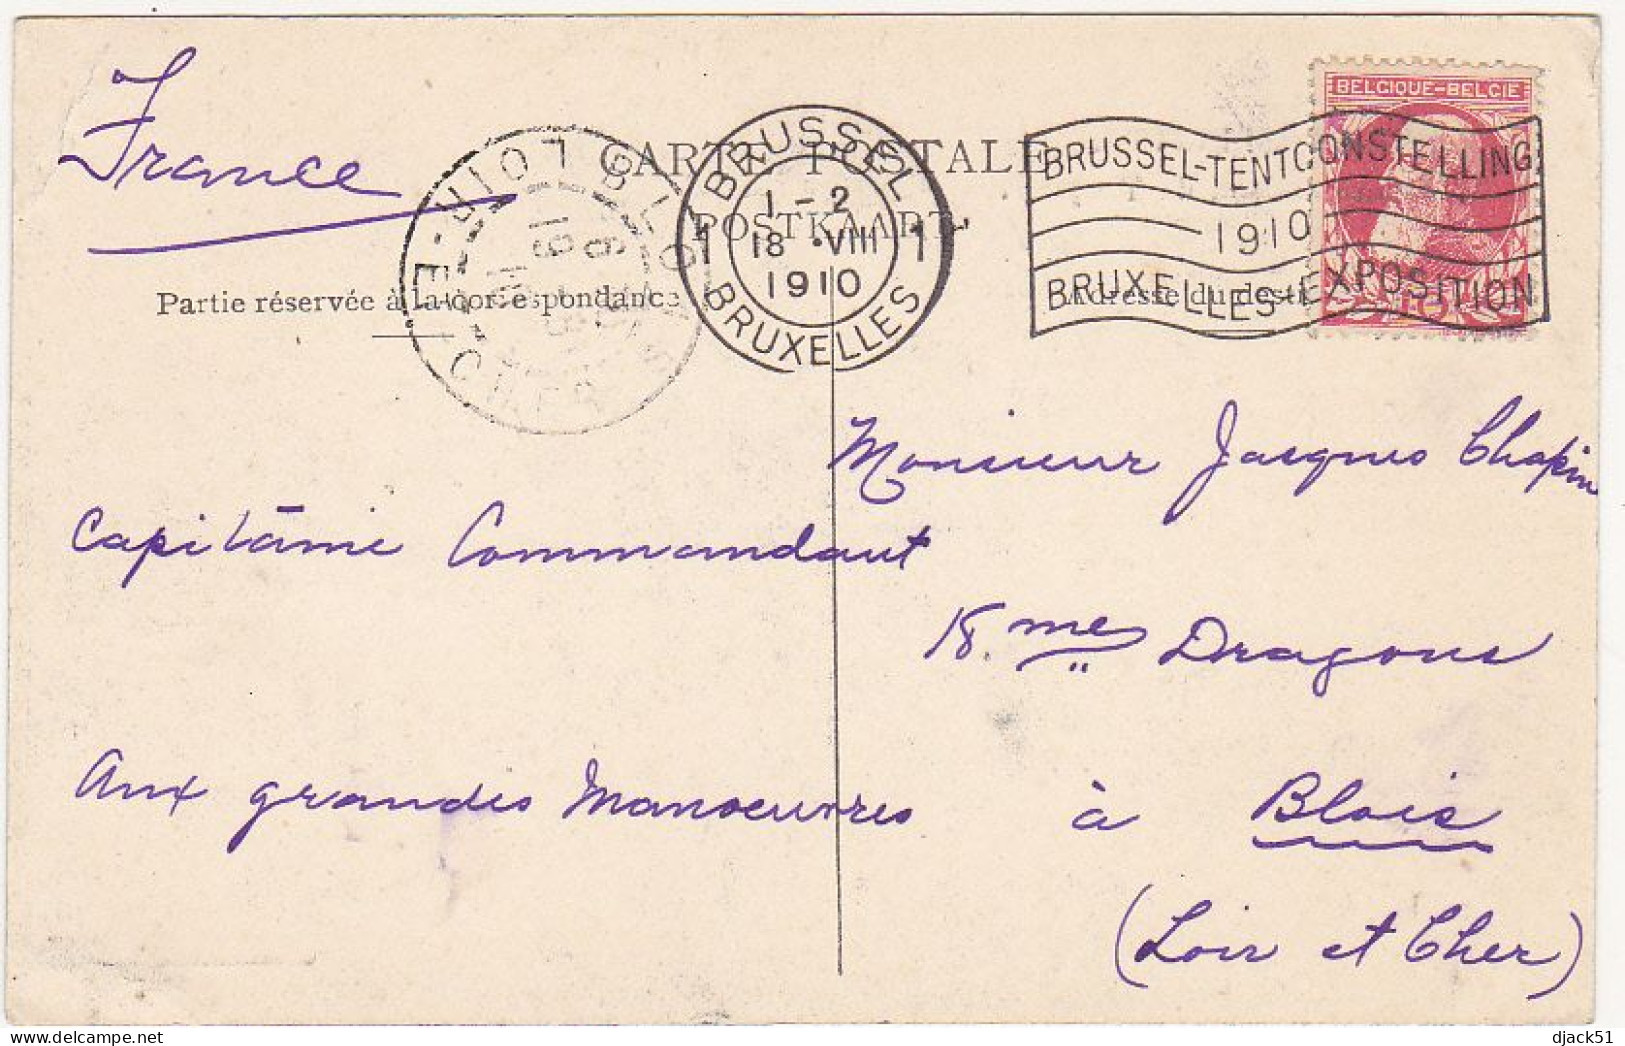 France
CARTE POSTALE
POSTKAART
Partie réservée à la correspondance
Adresse du dest
BLOIS
LOIR-ET-CHER
BRUSSEL
1-2
1 18 VIII 1
1910
BRUXELLES
BRUSSEL-TENTOONSTELLING
1910
BRUXELLES-EXPOSITION
BELGIQUE-BELGIE
Monsieur Jacques Chapin
Capitaine Commandant
18.me Dragons
Aux grandes Manoeuvres à Blois
(Loir et Cher)
delcampe.net
djack51